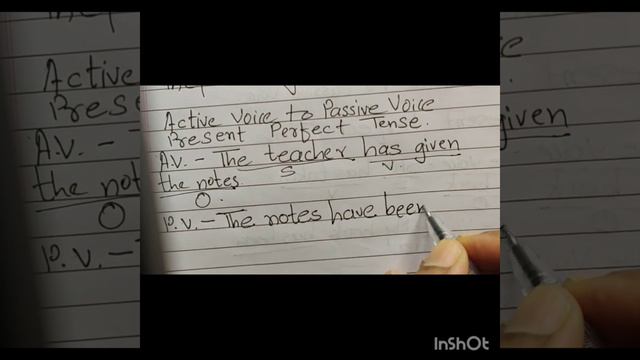 Active Voice to Passive Voice
Present Perfect Tense.
A.V. - The teacher has given
S V
the notes.
O
P.V. - The notes have been
InShOt